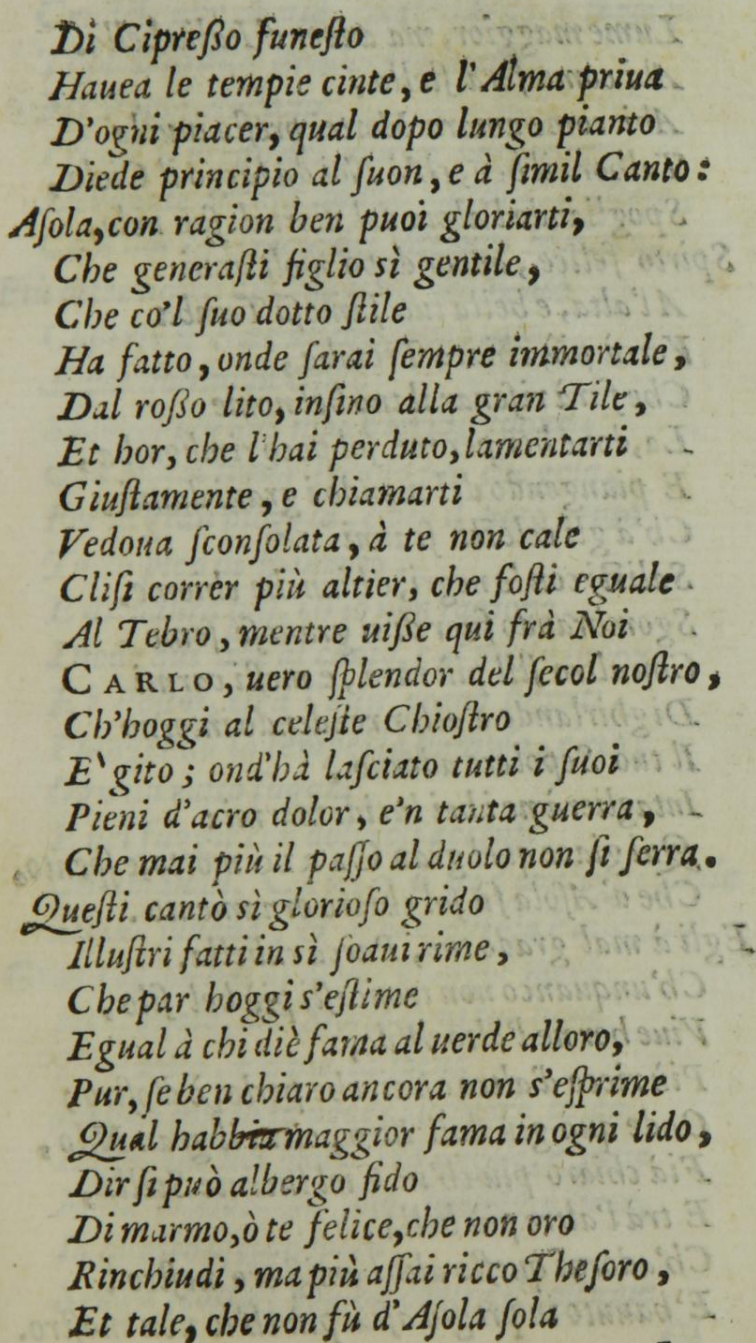 Di Cipreßo funeſto
Hauea le tempie cinte, e l'Alma priua
D'ogni piacer, qual dopo lungo pianto
Diede principio al ſuon, e à ſimil Canto:
Aſola, con ragion ben puoi gloriarti,
Che generaſti figlio sì gentile,
Che co'l ſuo dotto ſtile
Ha fatto, onde ſarai ſempre immortale,
Dal roßo lito, inſino alla gran Tile,
Et hor, che l'hai perduto, lamentarti
Giuſtamente, e chiamarti
Vedoua ſconſolata, à te non cale
Cliſi correr più altier, che foſti eguale
Al Tebro, mentre uiße qui frà Noi
CARLO, uero ſplendor del ſecol noſtro,
Ch'hoggi al celeſte Chioſtro
E` gito; ond'hà laſciato tutti i ſuoi
Pieni d'acro dolor, e'n tanta guerra,
Che mai più il paſſo al duolo non ſi ſerra.
Queſti cantò sì glorioſo grido
Illuſtri fatti in sì ſoaui rime,
Che par hoggi s'eſtime
Egual à chi diè fama al uerde alloro,
Pur, ſe ben chiaro ancora non s'eſprime
Qual habbia maggior fama in ogni lido,
Dir ſi può albergo fido
Di marmo, ò te felice, che non oro
Rinchiudi, ma più aſſai ricco Theſoro,
Et tale, che non fù d'Aſola ſola